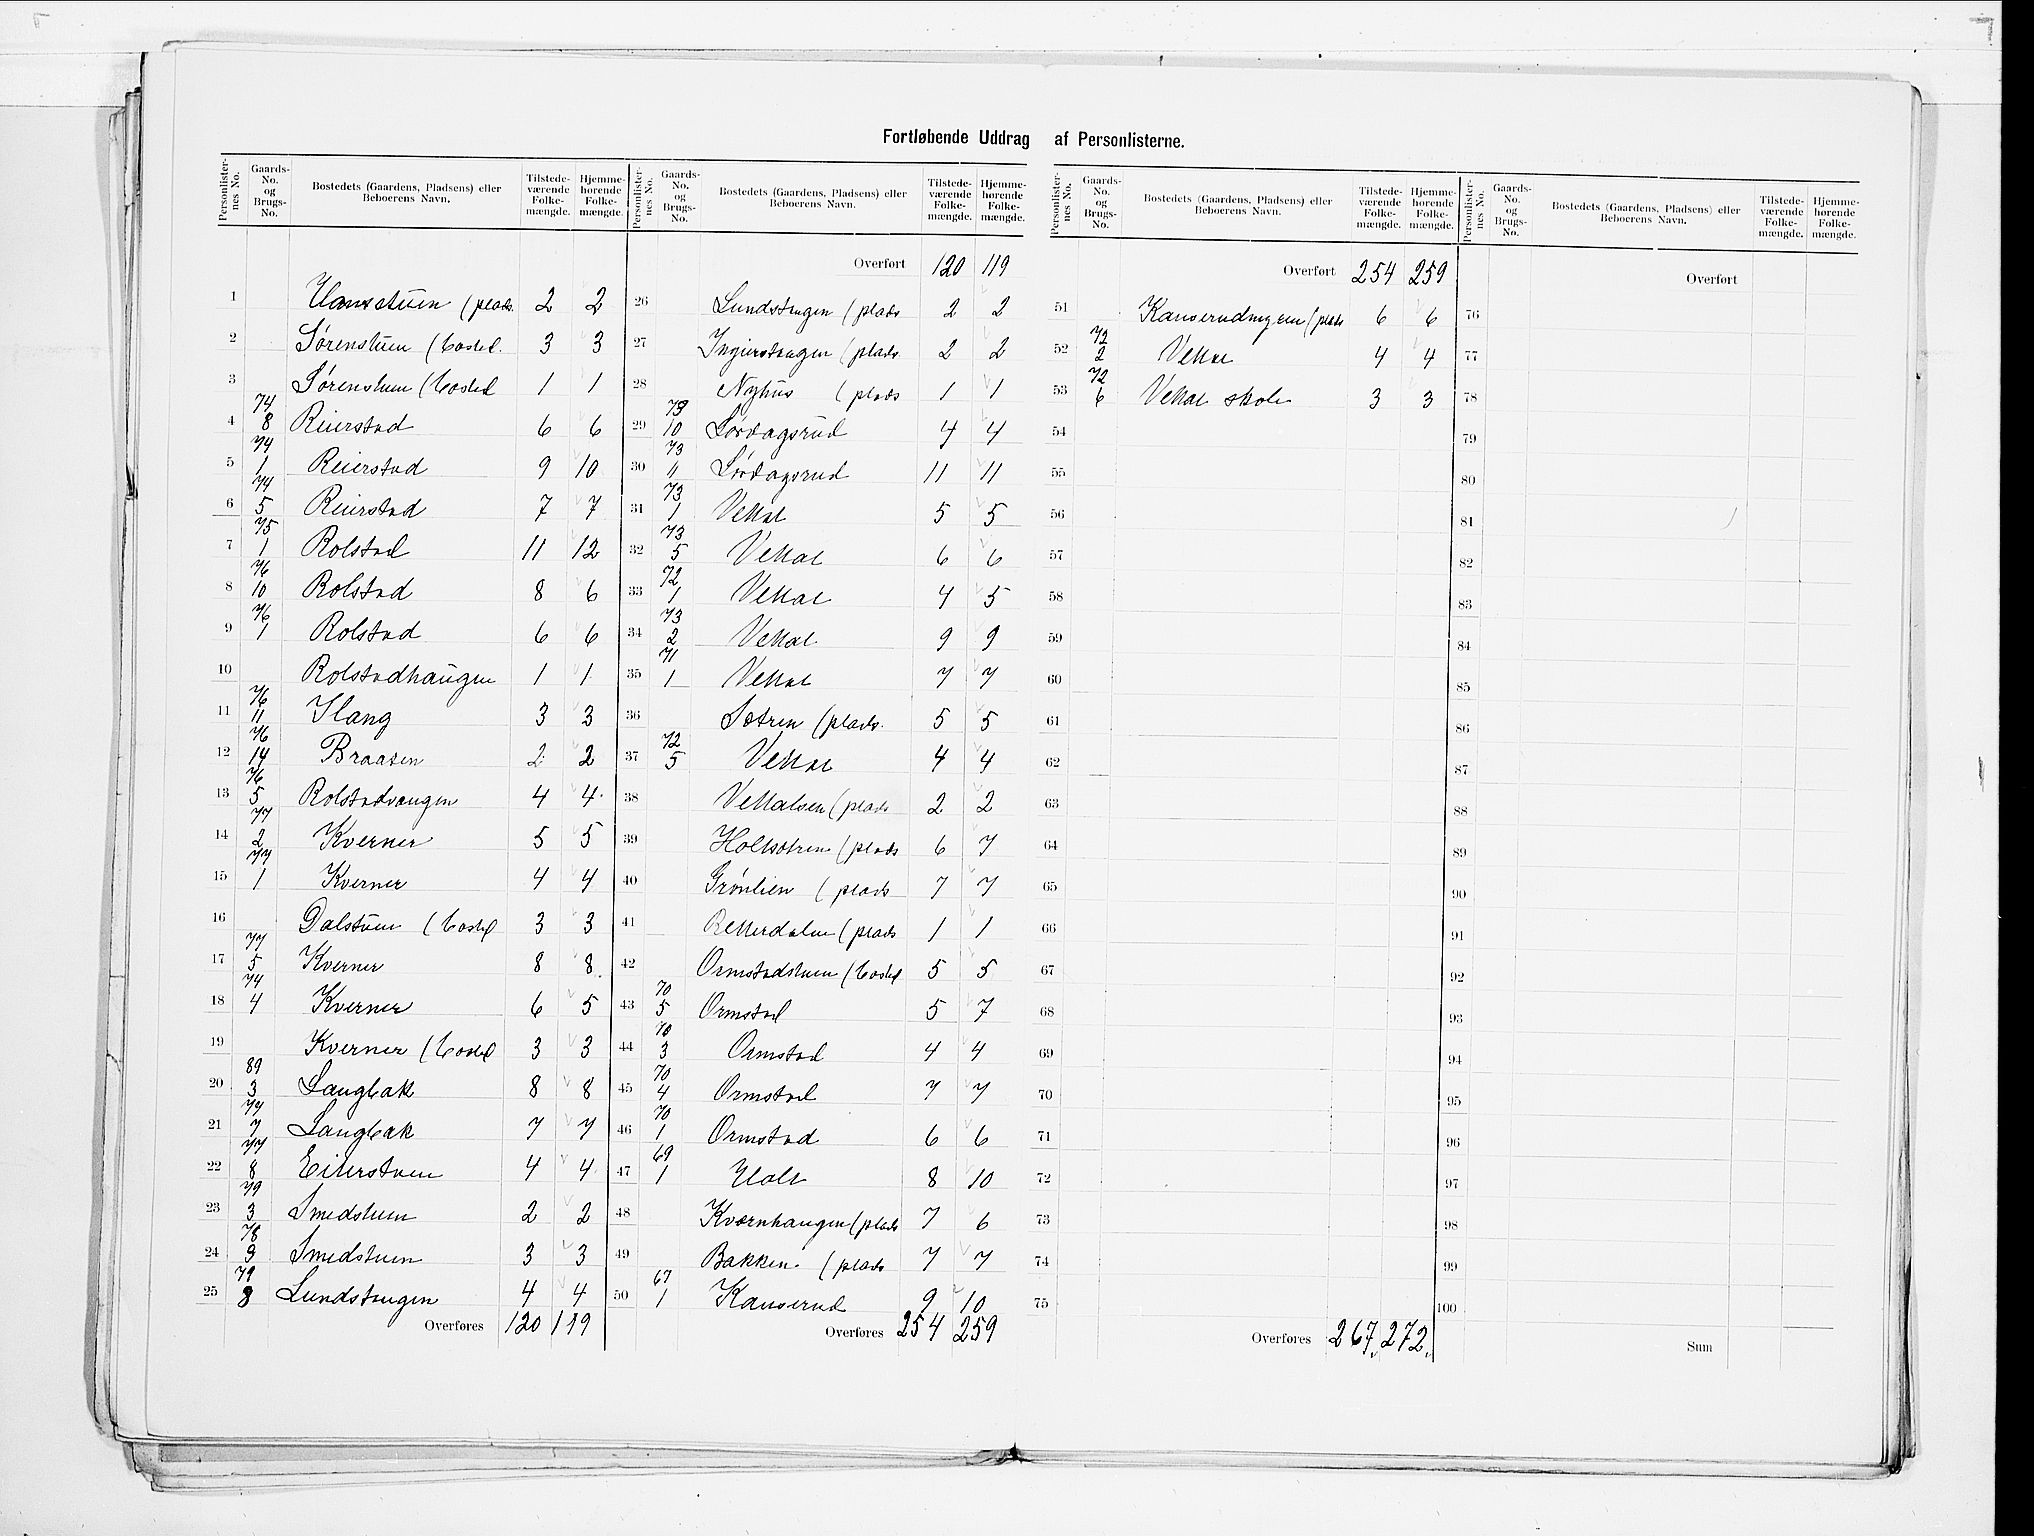 Fortløbende Uddrag af Personlisterne.
Personlister-nes No. Gaards-No. og Brugs-No. Bostedets (Gaardens, Pladsens) eller Beboerens Navn. Tilstede-værende Folke-mængde. Hjemme-hørende Folke-mængde.
1 Hansstuen (plads. 2 2
2 Sørenstuen (bosted. 3 3
3 Sørenstuen (bosted 1 1
4 74 8 Reierstad 6 6
5 74 1 Reierstad 9 10
6 74 5 Reierstad 7 7
7 75 1 Rolstad 11 12
8 76 10 Rolstad 8 6
9 76 1 Rolstad 6 6
10 Rolstadhaugen 1 1
11 76 11 Ilang 3 3
12 76 14 Braaten 2 2
13 76 5 Rolstadvangen 4 4
14 77 2 Kverner 5 5
15 77 1 Kverner 4 4
16 Dalstuen (bosted 3 3
17 77 5 Kverner 8 8
18 74 4 Kverner 6 5
19 Kverner (bosted 3 3
20 89 3 Langbak 8 8
21 77 7 Langbak 7 7
22 77 8 Eilerstuen 4 4
23 79 3 Smedstuen 2 2
24 78 9 Smedstuen 3 3
25 79 8 Lundstangen 4 4
Overføres 120 119
Personlister-nes No. Gaards-No. og Brugs-No. Bostedets (Gaardens, Pladsens) eller Beboerens Navn. Tilstede-værende Folke-mængde. Hjemme-hørende Folke-mængde.
Overført 120 119
26 Lundstangen (plads 2 2
27 Ingierstangen (plads 2 2
28 Nyhus (plads 1 1
29 73 10 Lørdagsrud 4 4
30 73 11 Lørdagsrud 11 11
31 73 1 Vettal 5 5
32 73 5 Vettal 6 6
33 72 1 Vettal 4 5
34 73 2 Vettal 9 9
35 71 1 Vettal 7 7
36 Sætren (plads. 5 5
37 72 5 Vettal 4 4
38 Vettalsen (plads 2 2
39 Holtsætren (plads 6 7
40 Grønlien (plads 7 7
41 (plads 1 1
42 Ormstadstuen (bosted 5 5
43 70 5 Ormstad 5 7
44 70 3 Ormstad 4 4
45 70 4 Ormstad 7 7
46 70 1 Ormstad 6 6
47 69 1 Holt 8 10
48 Kværnhaugen (plads 7 6
49 Bakken. (plads 7 7
50 67 1 Kauserud 9 10
Overføres 254 259
Personlister-nes No. Gaards-No. og Brugs-No. Bostedets (Gaardens, Pladsens) eller Beboerens Navn. Tilstede-værende Folke-mængde. Hjemme-hørende Folke-mængde.
Overført 254 259
51 Kauserudmyren (plads 6 6
52 72 2 Vettal 4 4
53 72 6 Vettal skole 3 3
54
55
56
57
58
59
60
61
62
63
64
65
66
67
68
69
70
71
72
73
74
75
Overføres 267. 272.
Personlister-nes No. Gaards-No. og Brugs-No. Bostedets (Gaardens, Pladsens) eller Beboerens Navn. Tilstede-værende Folke-mængde. Hjemme-hørende Folke-mængde.
Overført
76
77
78
79
80
81
82
83
84
85
86
87
88
89
90
91
92
93
94
95
96
97
98
99
100
Sum